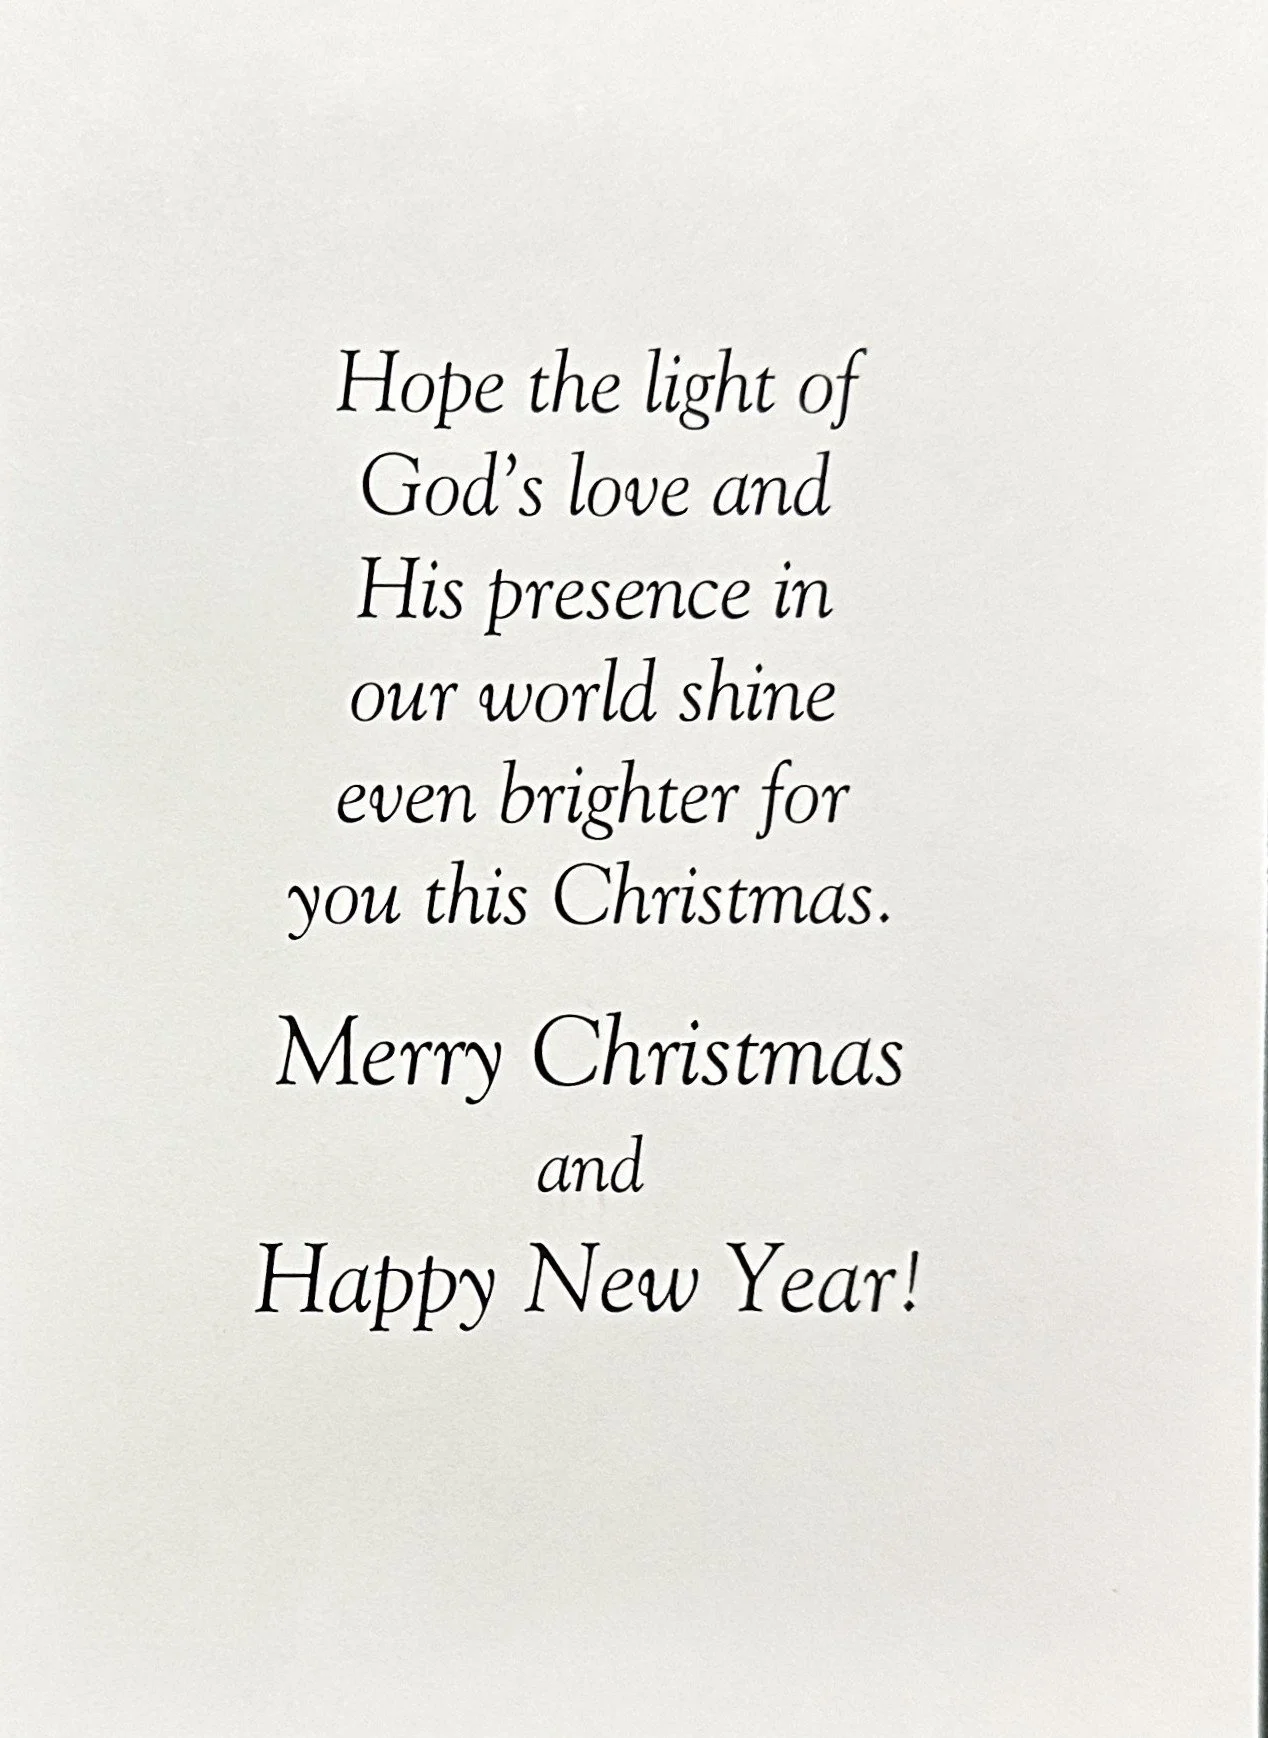 Hope the light of
God’s love and
His presence in
our world shine
even brighter for
you this Christmas.
Merry Christmas
and
Happy New Year!